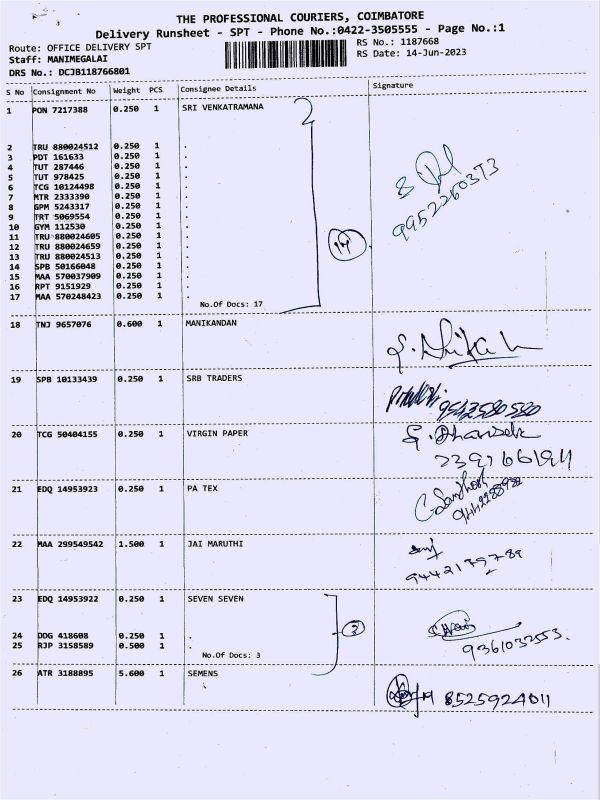 THE PROFESSIONAL COURIERS, COIMBATORE
Delivery Runsheet - SPT - Phone No.:0422-3505555 - Page No.:1
Route: OFFICE DELIVERY SPT
RS No.: 1187668
Staff: MANIMEGALAI
RS Date: 14-Jun-2023
DRS No.: DCJB118766801
S No Consignment No Weight PCS Consignee Details Signature
1 PON 7217388 0.250 1 SRI VENKATRAMANA
2 TRU 880024512 0.250 1 .
3 PDT 161633 0.250 1 .
4 TUT 287446 0.250 1 .
5 TUT 978425 0.250 1 .
6 TCG 10124498 0.250 1 .
7 MTR 2333390 0.250 1 .
8 GPM 5243317 0.250 1 .
9 TRT 5069554 0.250 1 .
10 GYM 112530 0.250 1 .
11 TRU 880024605 0.250 1 .
12 TRU 880024659 0.250 1 .
13 TRU 880024513 0.250 1 .
14 SPB 50166048 0.250 1 .
15 MAA 570037909 0.250 1 .
16 RPT 9151929 0.250 1 .
17 MAA 570248423 0.250 1 .
No.Of Docs: 17
9952260373
18 TNJ 9657076 0.600 1 MANIKANDAN
19 SPB 10133439 0.250 1 SRB TRADERS
9542580580
20 TCG 50404155 0.250 1 VIRGIN PAPER
21 EDQ 14953923 0.250 1 PA TEX
22 MAA 299549542 1.500 1 JAI MARUTHI
23 EDQ 14953922 0.250 1 SEVEN SEVEN
24 DDG 418608 0.250 1 .
25 RJP 3158589 0.500 1 .
No.Of Docs: 3
3
9361033553.
26 ATR 3188895 5.600 1 SEMENS
8525924011